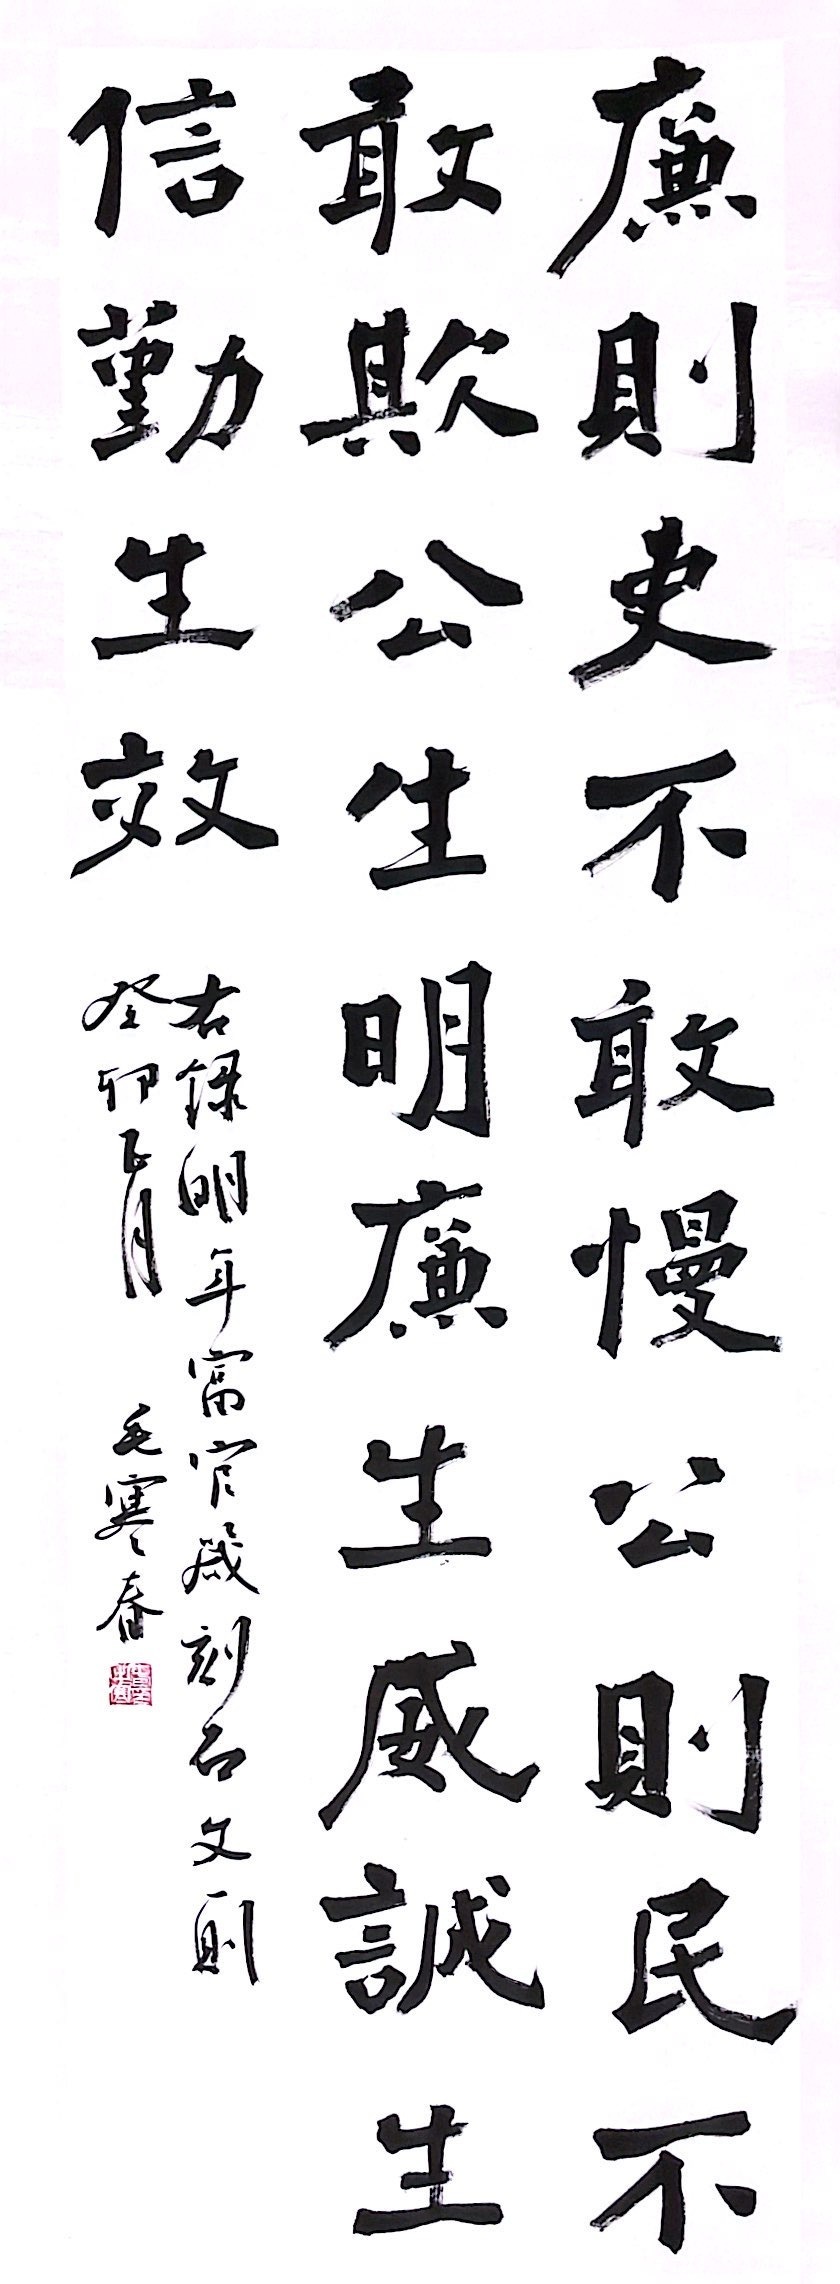 廉則吏不敢慢公則民不
敢欺公生明廉生威誠生
信勤生效
右録明年富官箴刻石文一則
癸卯正月 毛寒春